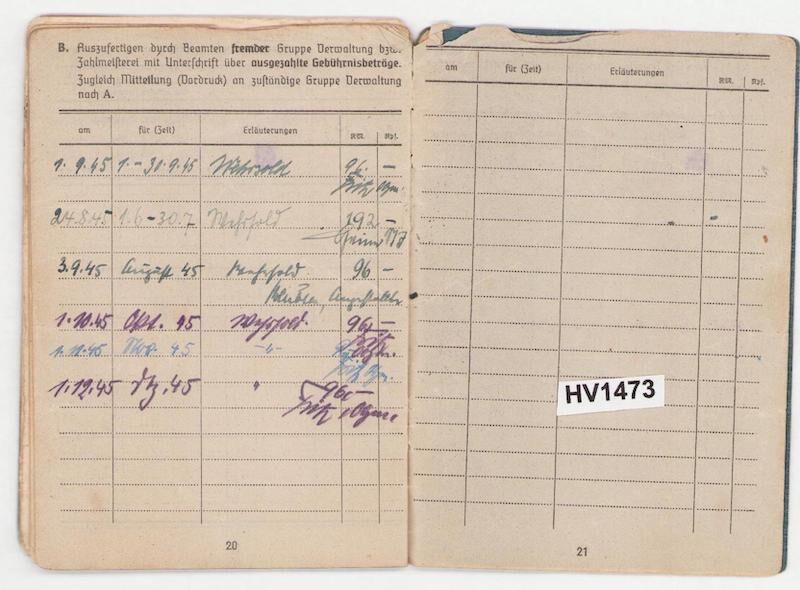 B. Auszufertigen durch Beamten fremder Gruppe Verwaltung bzw.
Zahlmeisterei mit Unterschrift über ausgezahlte Gebührnisbeträge.
Zugleich Mitteilung (Vordruck) an zuständige Gruppe Verwaltung
nach A.
am für (Zeit) Erläuterungen RM. Rpf.
1. 9.45 1. – 30.9.45 Wehrsold 96,–
24.8.45 1.6 – 30.7 Wehrsold 192 –
3.9.45 August 45 Wehrsold 96 –
1.10.45 Okt. 45 Wehrsold 96,–
1.11.45 Nov. 45 –"–
1.12.45 Dez. 45 " 96,–
20
am für (Zeit) Erläuterungen RM. Rpf.
HV1473
21